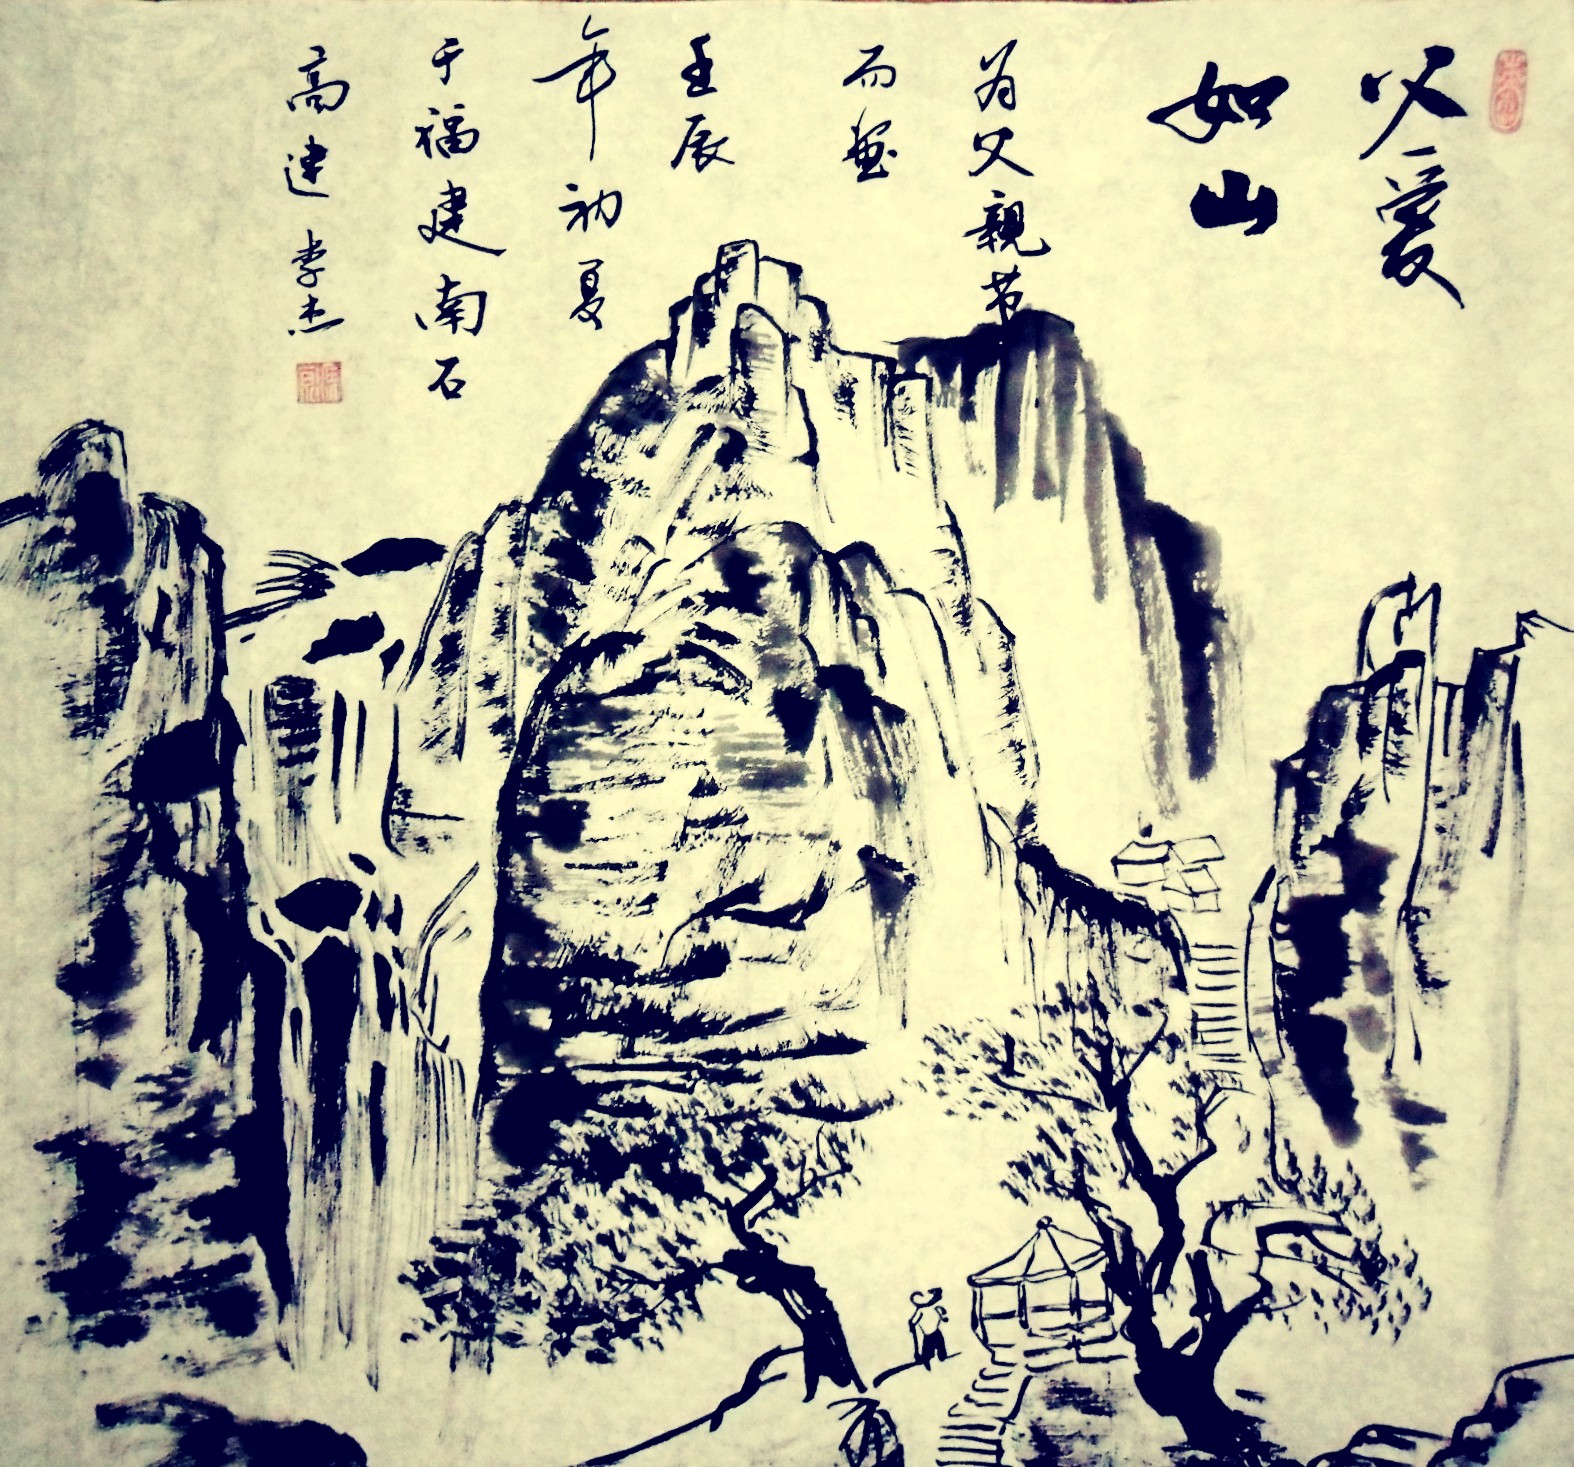 父愛
如山
为父親节
而画
壬辰
年初夏
于福建南石
高建 李杰